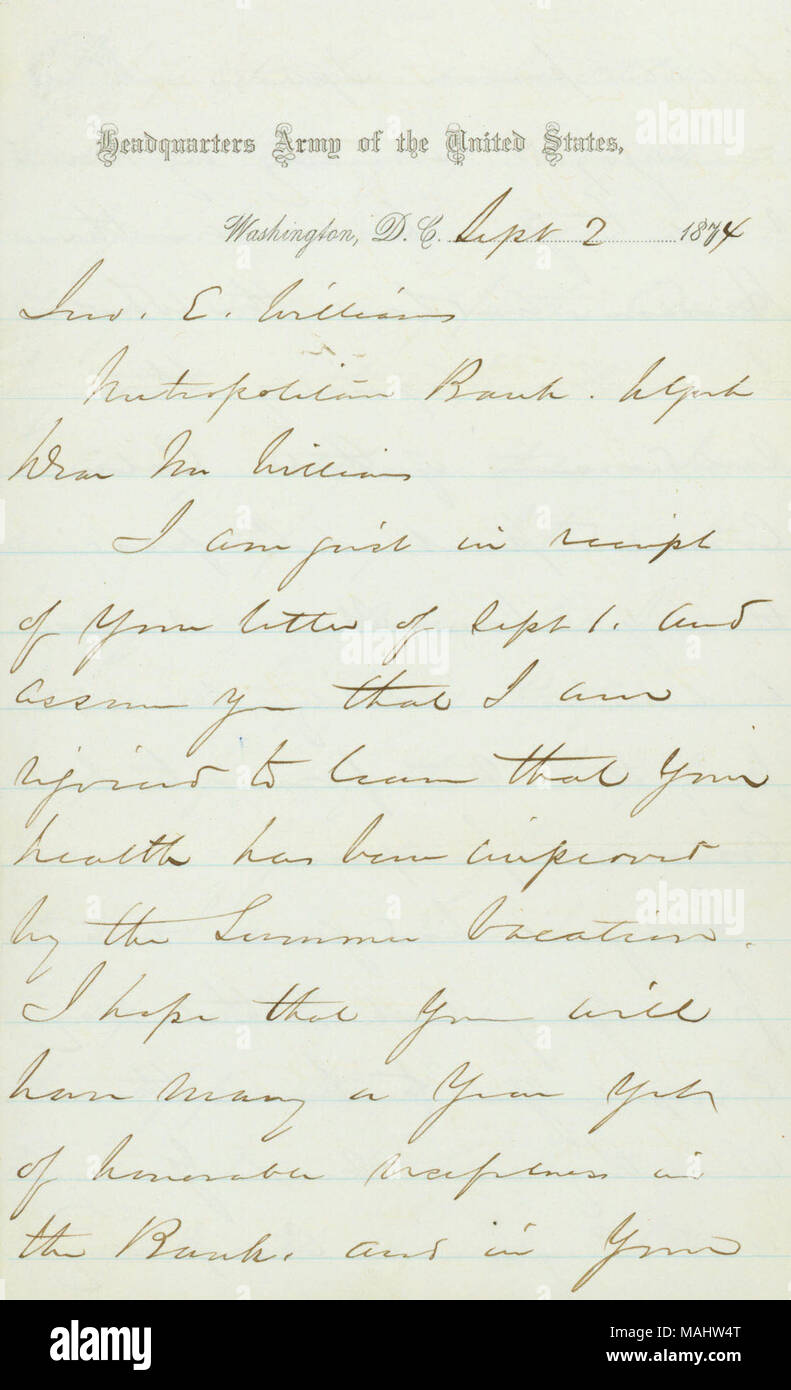 Headquarters Army of the United States,
Washington, D.C. Sept 2 1874
Jno. E. Williams
Metropolitan Bank. N York
Dear Mr Williams
I am just in receipt
of your letter of Sept 1. and
assure you that I am
rejoiced to learn that your
health has been improved
by the Summer Vacation.
I hope that you will
have many a year yet
of honorable usefulness in
the Bank. and in your
alamy
alamy
alamy
alamy
alamy
Image ID: MAHW4T
www.alamy.com